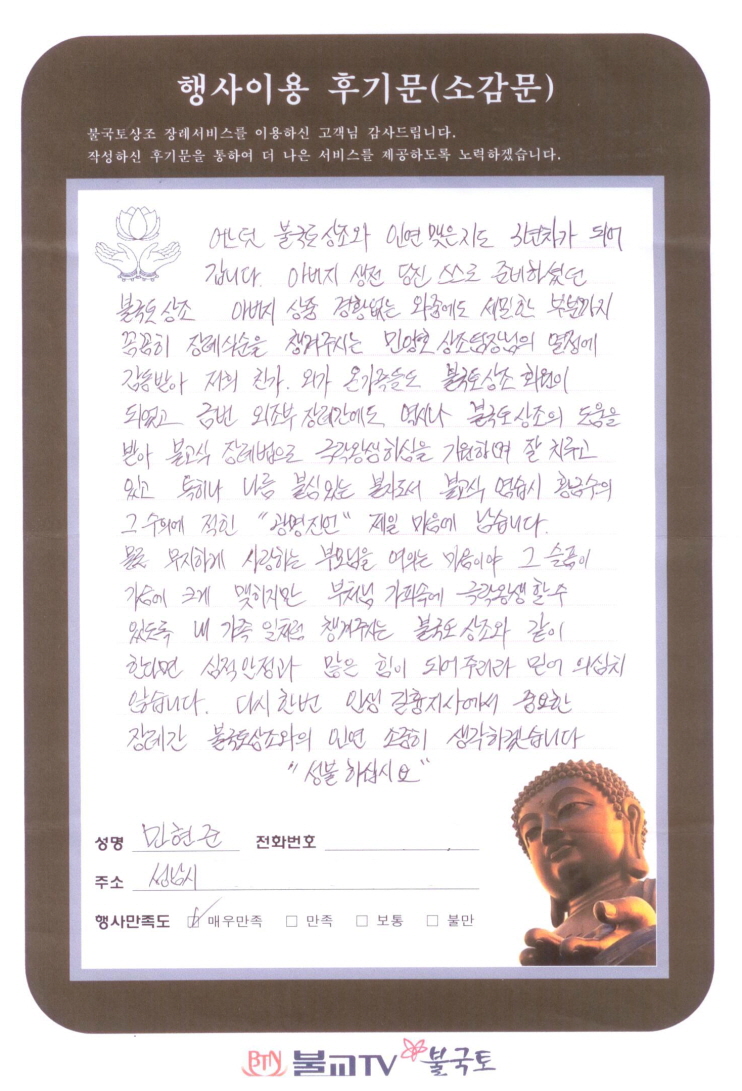 행사이용 후기문(소감문)
불국토상조 장례서비스를 이용하신 고객님 감사드립니다.
작성하신 후기문을 통하여 더 나은 서비스를 제공하도록 노력하겠습니다.
어느덧 불국토상조와 인연 맺은지도 3년차가 되어
갑니다. 아버지 생전 당신 스스로 준비하셨던
불국토상조 아버지 상중 경황없는 와중에도 세밀한 부분까지
꼼꼼히 장례식순을 챙겨주시는 민양호 상조팀장님의 열정에
감동받아 저희 친가. 외가 온가족들도 불국토상조 회원이
되었고 금번 외조부 장례간에도 역시나 불국토상조의 도움을
받아 불교식 장례법으로 극락왕생하심을 기원하며 잘 치루고
있고 특히나 나름 불심있는 불자로서 불교식 염습시 황금수의
그 수의에 적힌 "광명진언" 제일 마음에 남습니다.
물론 무지하게 사랑하는 부모님을 여의는 마음이야 그 슬픔이
가슴에 크게 맺히지만 부처님 가피속에 극락왕생할 수
있도록 내 가족 일처럼 챙겨주시는 불국토상조와 같이
한다면 심적안정과 많은 힘이 되어주리라 믿어 의심치
않습니다. 다시 한번 인생 길흉지사에서 중요한
장례간 불국토상조와의 인연 소중히 생각하겠습니다
"성불 하십시오"
성명 민현준 전화번호
주소 성남시
행사만족도 매우만족 만족 보통 불만
BTN 불교TV 불국토